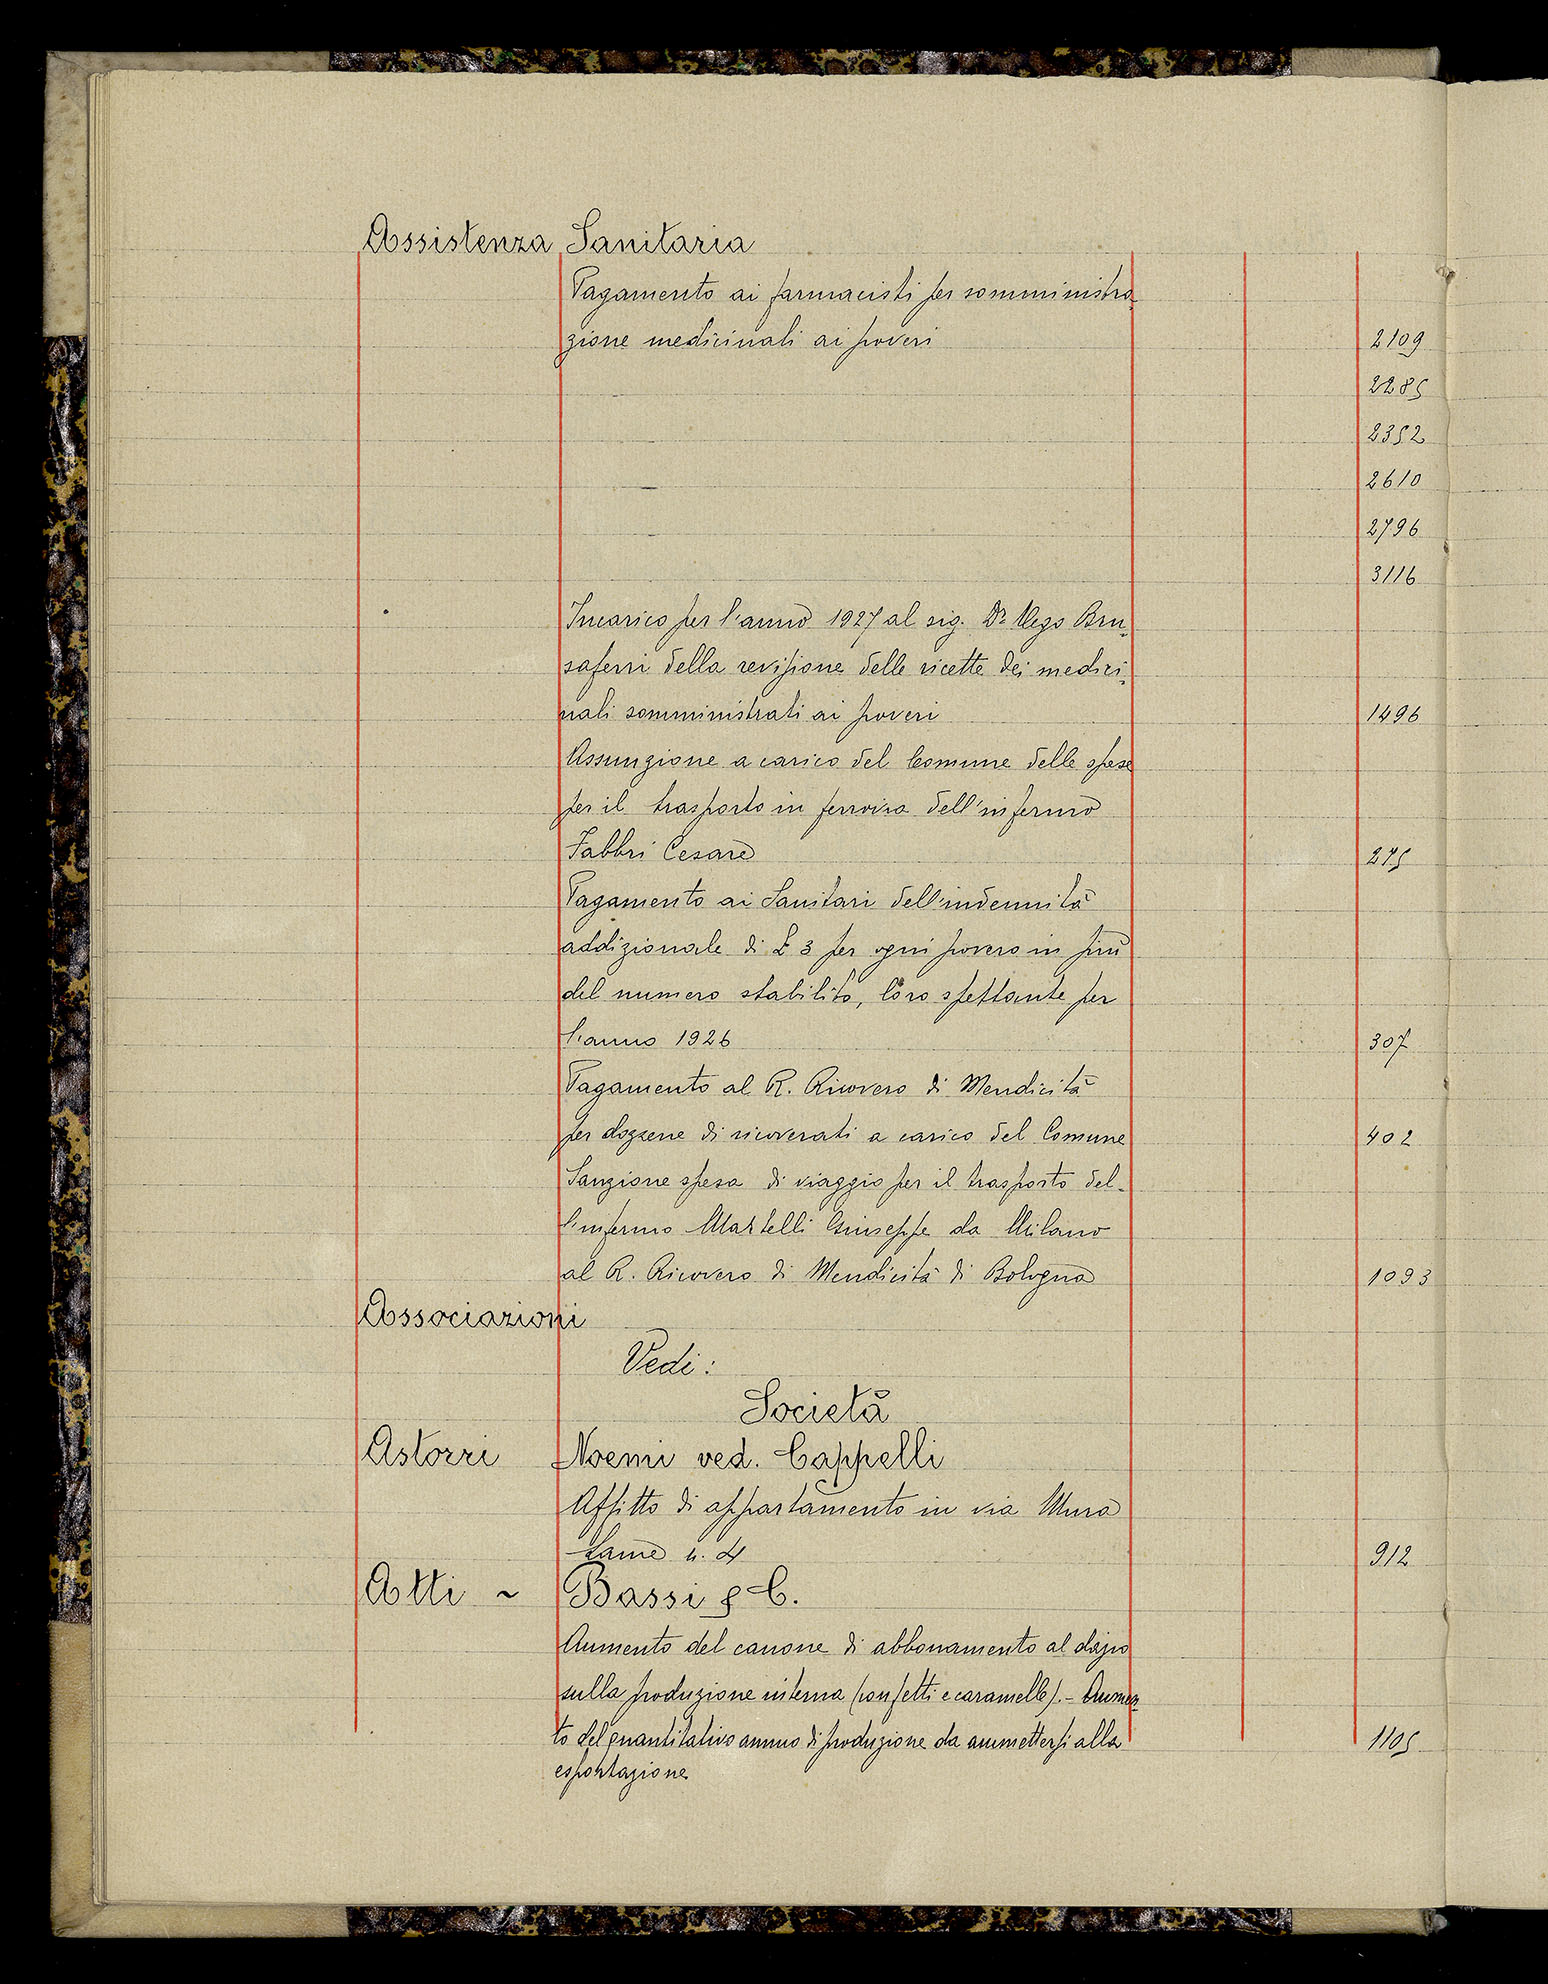 Assistenza Sanitaria
Pagamento ai farmacisti per somministra-
zione medicinali ai poveri 2109
2285
2352
2610
2796
3116
Incarico per l'anno 1927 al sig. Dr. Ugo Bru-
saferri della revisione delle ricette dei medici-
nali somministrati ai poveri 1496
Assunzione a carico del Comune delle spese
per il trasporto in ferrovia dell'infermo
Fabbri Cesare 275
Pagamento ai Sanitari dell'indennità
addizionale di £ 3 per ogni povero in più
del numero stabilito, loro spettante per
l'anno 1926 307
Pagamento al R. Ricovero di Mendicità
per dozzene di ricoverati a carico del Comune 402
Sanzione spesa di viaggio per il trasporto del-
l'infermo Martelli Giuseppe da Milano
al R. Ricovero di Mendicità di Bologna 1093
Associazioni
Vedi:
Società
Astorri Noemi ved. Cappelli
Affitto di appartamento in via Mura
Lame n. 4 912
Atti ~ Bassi & C.
Aumento del canone di abbonamento al dazio
sulla produzione interna (confetti e caramelle). - Aumen-
to del quantitativo annuo di produzione da ammettersi alla 1105
esportazione